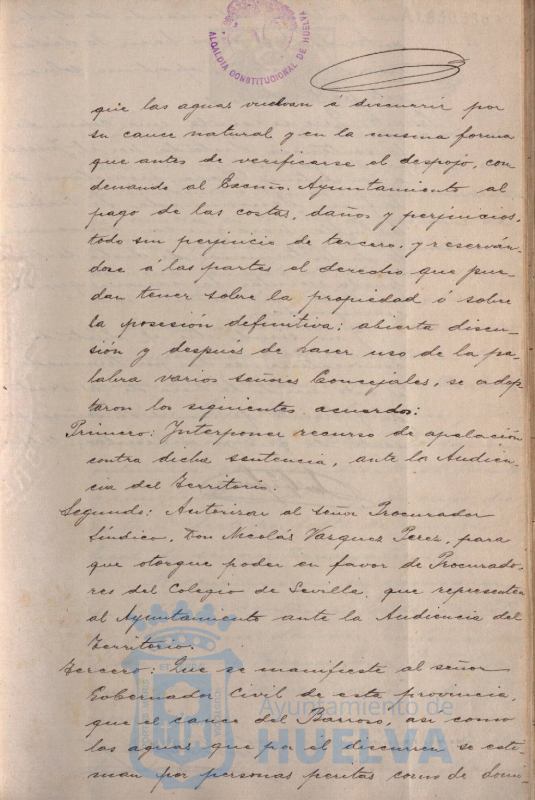 ALCALDIA CONSTITUCIONAL DE HUELVA
que las aguas vuelvan á discurrir por
su cauce natural y en la misma forma
que antes de verificarse el despojo, con
denando al Excmo. Ayuntamiento al
pago de las costas, daños y perjuicios,
todo sin perjuicio de tercero, y reserván-
dose á las partes el derecho que pue-
dan tener sobre la propiedad ó sobre
la posesión definitiva; abierta discu-
sión y después de hacer uso de la pa-
labra varios señores Concejales, se adop-
taron los siguientes acuerdos:
Primero: Interponer recurso de apelación
contra dicha sentencia, ante la Audien-
cia del Territorio.
Segundo: Autorizar al señor Procurador
Síndico, Don Nicolás Vazquez Perez, para
que otorgue poder en favor de Procurado-
res del Colegio de Sevilla, que representen
al Ayuntamiento ante la Audiencia del
Territorio.
Tercero: Que se manifieste al señor
Gobernador Civil de esta provincia,
que el cauce del Barroso, así como
las aguas que por el discurren se esti-
man por personas peritas como de domi-
Ayuntamiento de
HUELVA